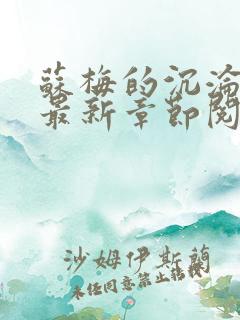 蘇梅的沉淪
最新章節閱
沙姆伊斯蘭
未经同意禁止转载